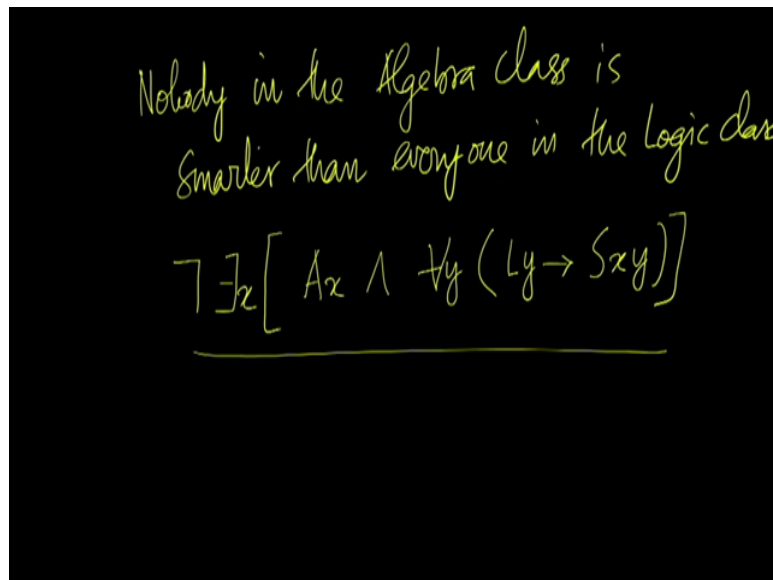 Nobody in the Algebra class is
smarter than everyone in the Logic class
¬∃x[ Ax ∧ ∀y (Ly → Sxy)]